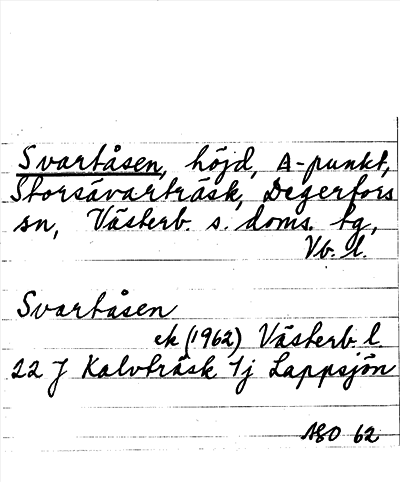 Svartåsen, höjd, A-punkt,
Storsävarträsk, Degerfors
sn, Västerb. s. doms. tg,
Vb. l.
Svartåsen
ek (1962) Västerb. l.
22 J Kalvträsk 7j Lappsjön
ÅSO 62